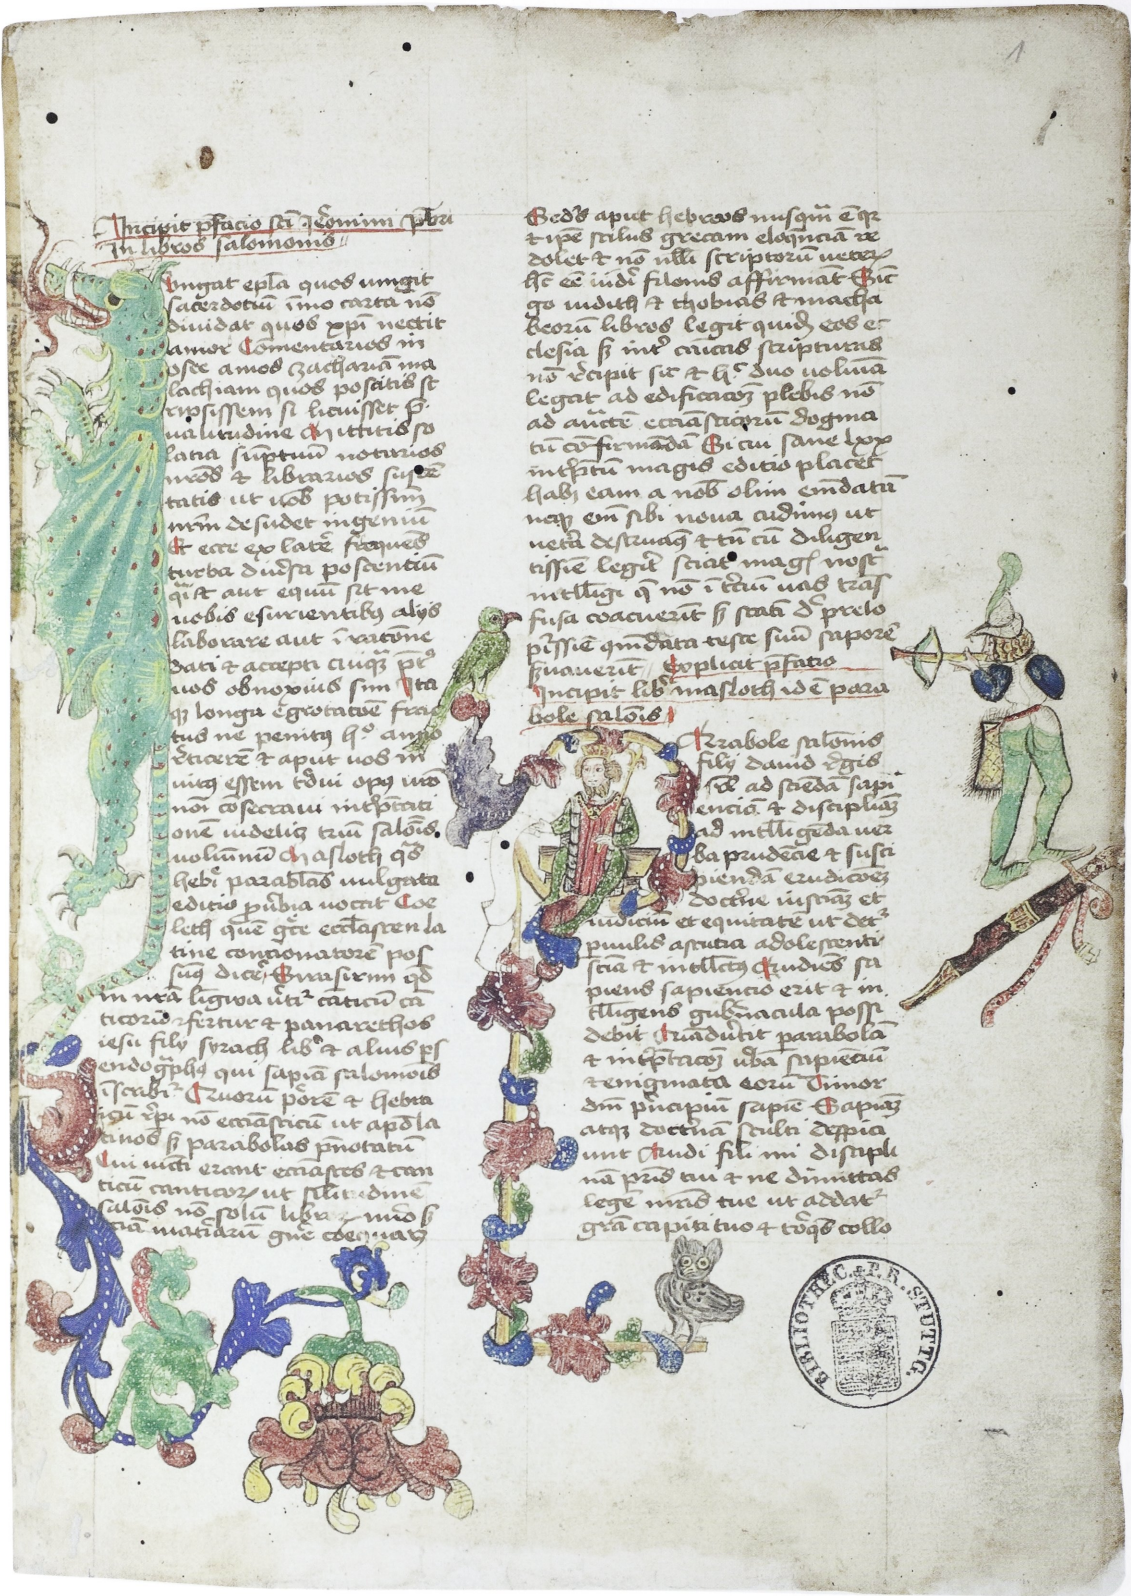 Incipit p̄facio sc̄i Jeronimi p̄bri
in libros salomonis
Iungat epl̄a quos iungit
sacerdotiū īmo carta nō
diuidat quos xp̄i nectit
amor Cōmentarios in
osee amos zachariā ma
lachiam quos poscitis sc
ripsissem si licuisset p̄
ualitudine Mittitis so
latia sūptuū notarios
nr̄os & librarios susten
tatis ut uob̄ potissimū
nr̄m desudet ingeniū
Et ecce ex latere frequēs
turba diu̓sa poscentiū
q̄si & aut equū sit me
uobis esurientibus alijs
laborare aut ī racōne
dati & accepti cuiq̄ p̄t̓
uos obnoxius sim Ita
q̄ longa egrotatōe frac
tus ne penitus h° anno
reticerē & aput uos m
utus essem tridui opus u̓ro
nōi cōsecraui int̓p̄tati
onē uidelicz triū salōis
uoluminū Masloth q̄s
hebr̓ parabl̄as uulgata
editio pu̓bia uocat Coe
leth quē gr̄ce eccl̄asten la
tine concionatorē pos
sum̓ dicere Sirasirim qd̄
in nr̄ā līgwā u̓tit̓ cāticū cā
ticorū Fertur & panarethos
iesu filij syrach lib̓ & alius ps
eudographus qui sapiā salomōis
īscribit̓ Quorū p̓orē & hebra
icū rep̓i nō eccl̄asticū ut apd̄ la
tinos sꝫ parabolas p̄notatū
Cui iūcti erant eccl̄astes & can
ticū canticoꝝ ut sil̄itudinē
salōis nō solū libroꝝ nūo sꝫ
eciā mat̓iarū gn̓e coequaret
Sed̓s aput hebreos nusq̄ ē qr
& ip̄e stilus grecam eloq̄nciā re
dolet & nō nulli scriptorū ueterꝝ
hc̄ eē iudei filonis affirmāt Sic̄
go iudith & thobias & macha
beorū libros legit quid̄ eos ec
clesia sꝫ int̓ canōicas scripturas
nō recipit sic & hec duo uolumīa
legat ad edificacōeꝫ plebis nō
ad auctē eccl̄asticorū dogma
tū cōfirmandā Si cui sane lxx
int̓p̄tum magis editio placet
habꝫ eam a nob̄ olim emēdatā
neqꝫ em̄ sibi noua cudimus ut
uet̓a destruamꝰ & tū cū diligen
tissiē legit̓ sciat magꝭ nostᵃ
intell̄igi q̄ nō ī t̓ciū uas tras
fusa coacuerūt sꝫ stati de prelo
p̓issiē cōmēdata teste suū saporē
s̓uauerīt Explicit p̄fatio
Incipit lib̓ masloth id ē para
bole salōis
Parabole salōmis
filij dauid regis
isrl̄ ad sciēdā sapi
enciā & disciplināꝫ
ad intell̄igēda uer
ba prudēcie & susci
piendā erudicōeꝫ
doct̓ne iusticiāꝫ et
iudiciū et equitatē ut det̓
pɩulis astucia adolescenti
sciā & intell̄ctus Audiēs sa
piens sapiencior erit & in
tell̄igens gub̓nacula possi
debit Aīaduertit parabolā
& int̓p̄tacōeꝫ u̓ba sapieciū
& enigmata eorū Timor
dn̄i p̓ncipiū sapiē Sapiāꝫ
atqꝫ doct̓nā stulti despici
unt Audi fili mi discipli
nā pr̄is tui & ne dimittas
legē mr̄is tue ut addat̓
gr̄a capiti tuo & torq̄s collo
BIBLIOTHEC. P. R. STUTTG.
1